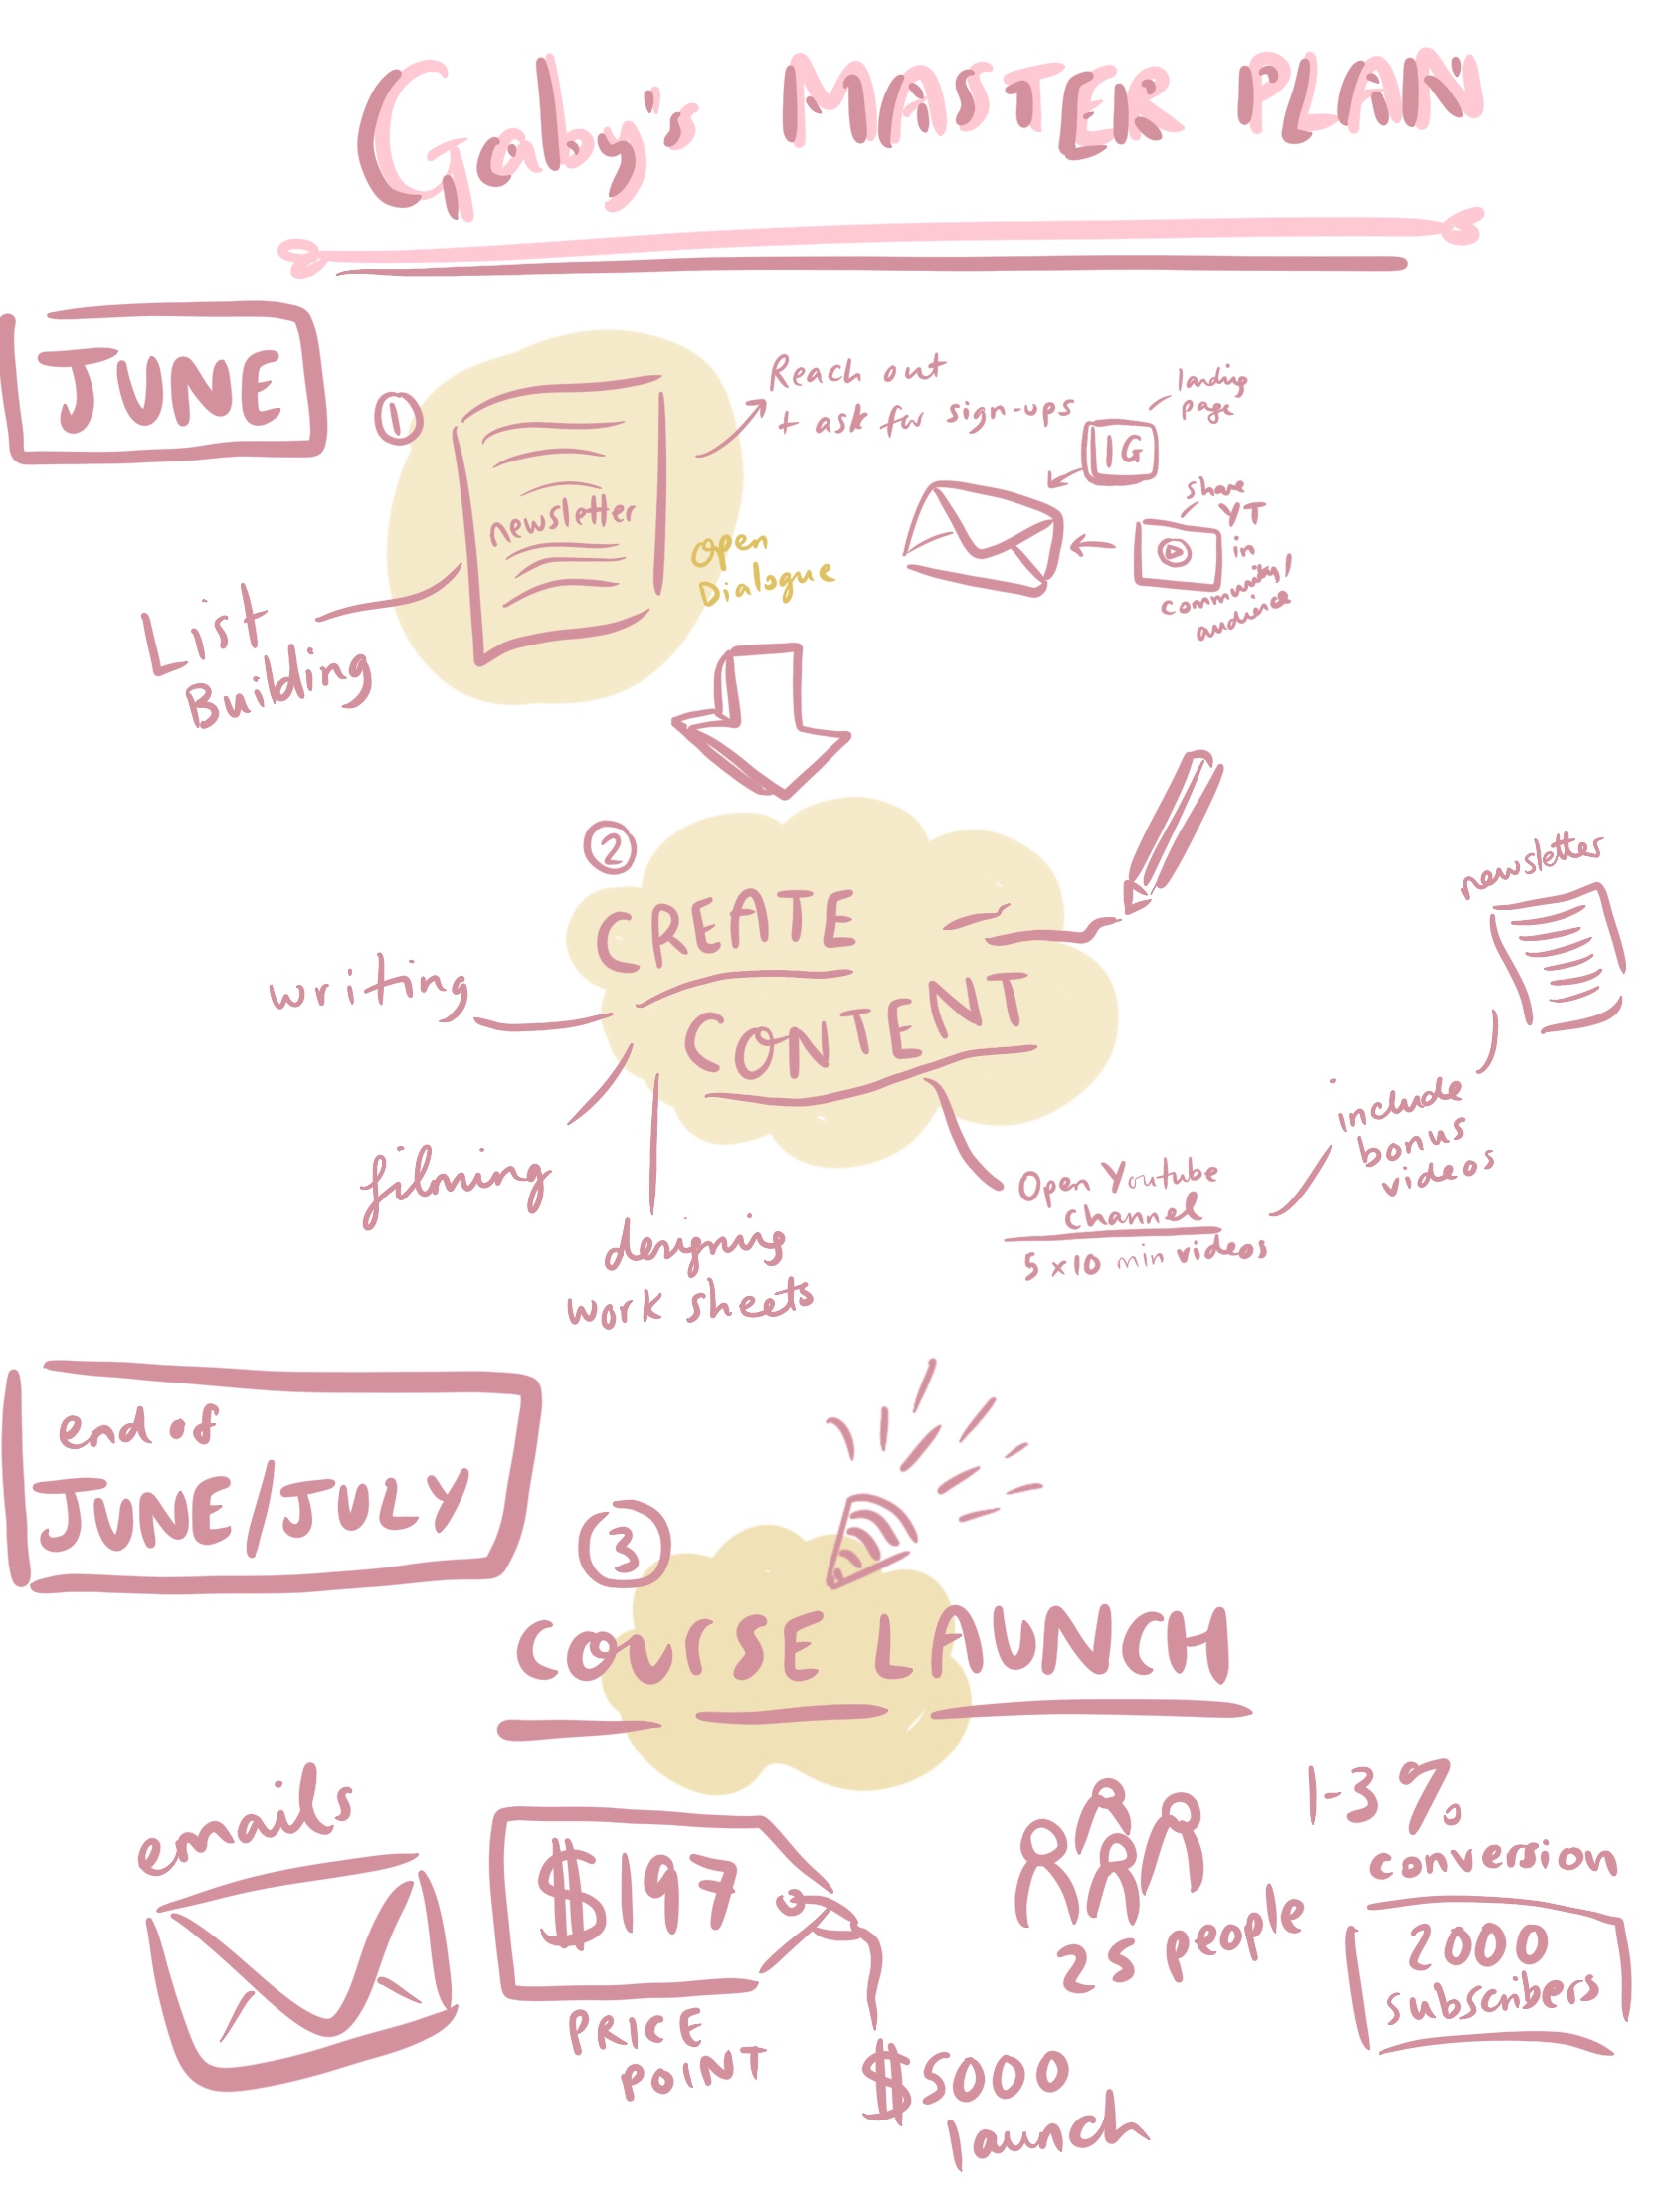 Gaby's MASTER PLAN
JUNE
1
newsletter
Open
Dialogue
List
Building
Reach out
+ ask for sign-ups
IG
landing
page
share
YT
in
community/
audience
2
CREATE
CONTENT
writing
filming
designing
work sheets
Open Youtube
channel
5 x 10 min videos
include
bonus
videos
newsletter
end of
JUNE/JULY
3
COURSE LAUNCH
emails
$197
PRICE
POINT
$5000
launch
25 people
1-3%
conversion
2000
subscribers